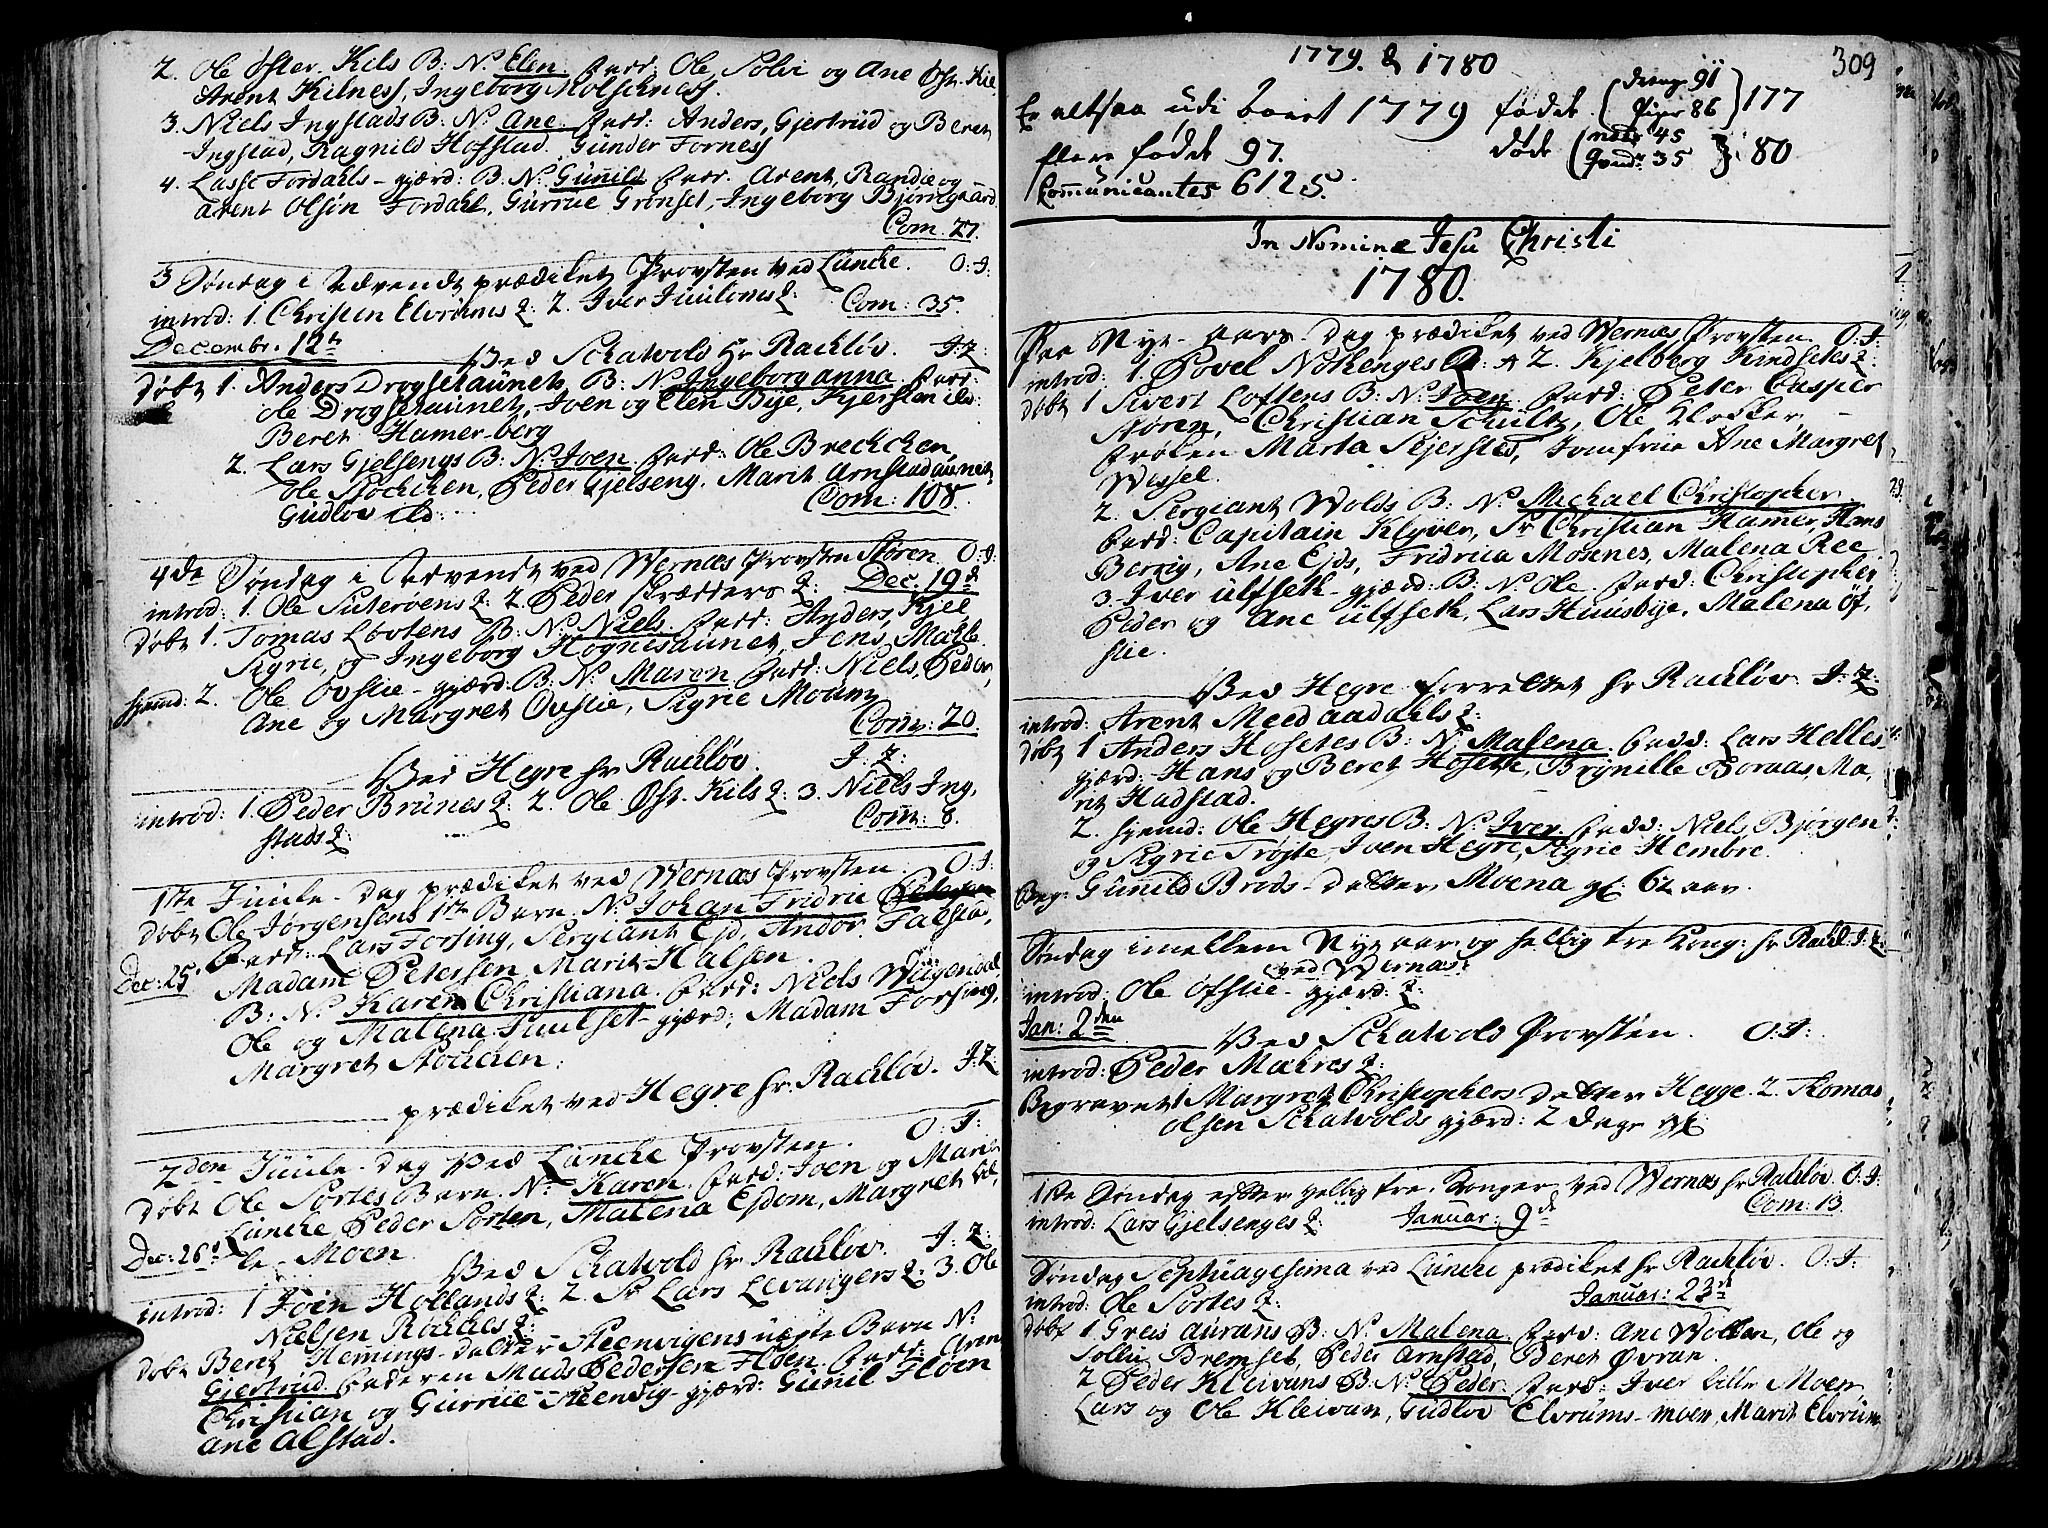 2. Ole Øster Kils B: N. Elen. fadd. Ole, Solvi og Ane Øst-Kil
Arent Kilness, Ingeborg Holschness.
3. Niels Ingstads B: N. Ane. fadd: Anders, Gjertrüd og Beret
Ingstad, Ragnild Hofstad. Günder Forness
4. Lasse Fordahls-gjærd: B. N. Günild fadd. Arent, Randie og
Arent Olsøn Fordahl, Gürrüe Grønset, Ingeborg Bjørngaard.
Com. 27.
3 Søndag i Advendt prædiket Provsten ved Lünche. O: I:
introd: 1. Christen Elvrüms Q: 2. Iver Juuloms Q: Com: 35.
Decembr. 12te
Ved Schatvold Hr Rachløv. I: Z:
døbt 1. Anders Drogsetaünets B: N. Ingeborg anna fadd:
Ole Drogsetaünet, Joen og Elen Bye, Kjersten ibd:
Beret Hamer-berg
2. Lars Gjelsengs B: N. Joen. fadd: Ole Brechchen,
Ole Støchchen, Peder Gjelseng. Marit Arnstadaünet
Güdlov ibd:
Com: 108.
4de Søndag i Advendt ved Wernæs Provsten Støren. O: I:
introd: 1. Ole Süterøens Q: 2. Peder skrædders Q: Dec: 19de
døbt 1. Tomas Løvtens B: N. Niels. fadd: Anders, Kjel
Sigrie, og Ingeborg Høgnesaünet, Jens, Mahle
hjemd: 2. Ole Ovslie-gjærd: B: N. Maren fadd: Niels, Peder,
Ane og Margret Ovslie, Sigrie Moum
Com: 20.
Ved Hegre hr Rachløv. I: Z:
introd: 1. Peder Brünes Q: 2. Ole Øst-Kils Q: 3. Niels Ing,
stads Q: Com: 8.
1ste Juule-dag prædiket ved Wernæs Provsten. O: I:
døbt Ole Jørgensens 1ste Barn. N. Johan Fridric
fadd: Lars Forsing, Sergiant Ejd, Andor Falstad,
Dec: 25. Madam Petersen, Marit Halsen.
B: N. Karen Christiana. fadd: Niels Wügendal
Ole og Malena Juulset-gjærd; Madam Forsing,
Margret Stochen.
prædiket ved Hegre hr. Rachløv. I: Z:
2den Juule-dag Ved Lünche Provsten. O: I:
døbt Ole Sortes Barn. N. Karen. fadd: Joen og Marit
Lünche Peder Sorten, Malena Ejdom, Margret
Dec: 26de le-Moen.
Ved Schatvold hr Rachløv. I: Z:
introd: 1 Joen Hollands Q: 2. Sr Lars Levangers Q: 3. Ole
Nielsen Røchches Q:
døbt Beret Hemmings-datter Steenvigens uægte Barn N.
Gjertrud. faderen Mads Pedersen Fløen. fadd: Aren
Christian og Gürrüe Steenvig-gjærd: Günil Fløen
Ane Alstad.
1779. & 1780
309
Er altsaa udi baaret 1779 fødet (drenge 91 / piger 86) 177
flere fødet 97. døde (mdk 45 / qvindk 35) 80
Communicantes 6125.
In Nomine Jesu Christi
1780.
Paa Nyt-aars-dag prædiket ved Wernæs Provsten. O: I:
introd: 1. Povel Nøkenges Q: 2. Kjelberg Kindsetes Q:
døbt 1 Sivert Loftens B: N. Joen. fadd: Peter Caspier
Støren, Christian Schultz, Ole Klokker,
frøken Marta Sejersted, Jomfrüe Ane Margret
Wessel.
2. Sergiant Wolds B: N. Michael Christopher.
fadd: Capitain Klyver, Sr Christian Hamer, Hans
Berrig, Ane Ejds, Fridrica Mosnes, Malena Ree
3. Iver Ulfseth-gjærd: B: N. Ole. fadd: Christopher
Peder og Ane Ulfseth, Lars Huusbye, Malena Øf,
slie.
Ved Hegre forrettet hr Rachløv. I: Z:
introd: Arent Meedaadahls Q:
døbt 1 Anders Hosetes B: N. Malena. fadd: Lars Helles-
gjærd: Hans og Beret Hosette, Brynille Bornaas, Ma,
rit Hadstad.
2. hjemd: Ole Hegres B: N. Iver. fadd: Niels, Bjørgen
og Sigrie Trøjte, Iven Hegre, Sigrie Hembre.
Beg: Günild Brøds-datter Moena gl: 62 aar.
Søndag imellem Nyt aar og hellig tre Kong: hr Rachl: I: Z:
ved Wernæs
introd: Ole Øfslie-gjærd: Q:
Jan: 2den
Ved Schatvold Provsten. O: I:
introd: Peder Makres Q:
Begravet 1 Margret Christophers datter Hegge. 2. Thomas
Olsen Schatvolds gjærd: 2 dage gl
1ste Søndag efter hellig tre Konger ved Wernæs hr Rachløv. O: I:
introd: Lars Gjelsenges Q: Januar: 9de Com: 13.
Søndag Septuagesima ved Lünche prædiket hr Rachløv. O: I:
introd: Ole Sortes Q: Januar: 23de
døbt 1 Greis Aurans B: N. Malena. fadd: Ane Wollan, Ole og
Solvi Bremset, Peder Arnstad, Beret Øvran.
2 Peder Kleivans B: N. Peder. fadd: Iver lille Moen
Lars og Ole Kleivan, Güdlov Elvrums-moen, Marit Elvrum